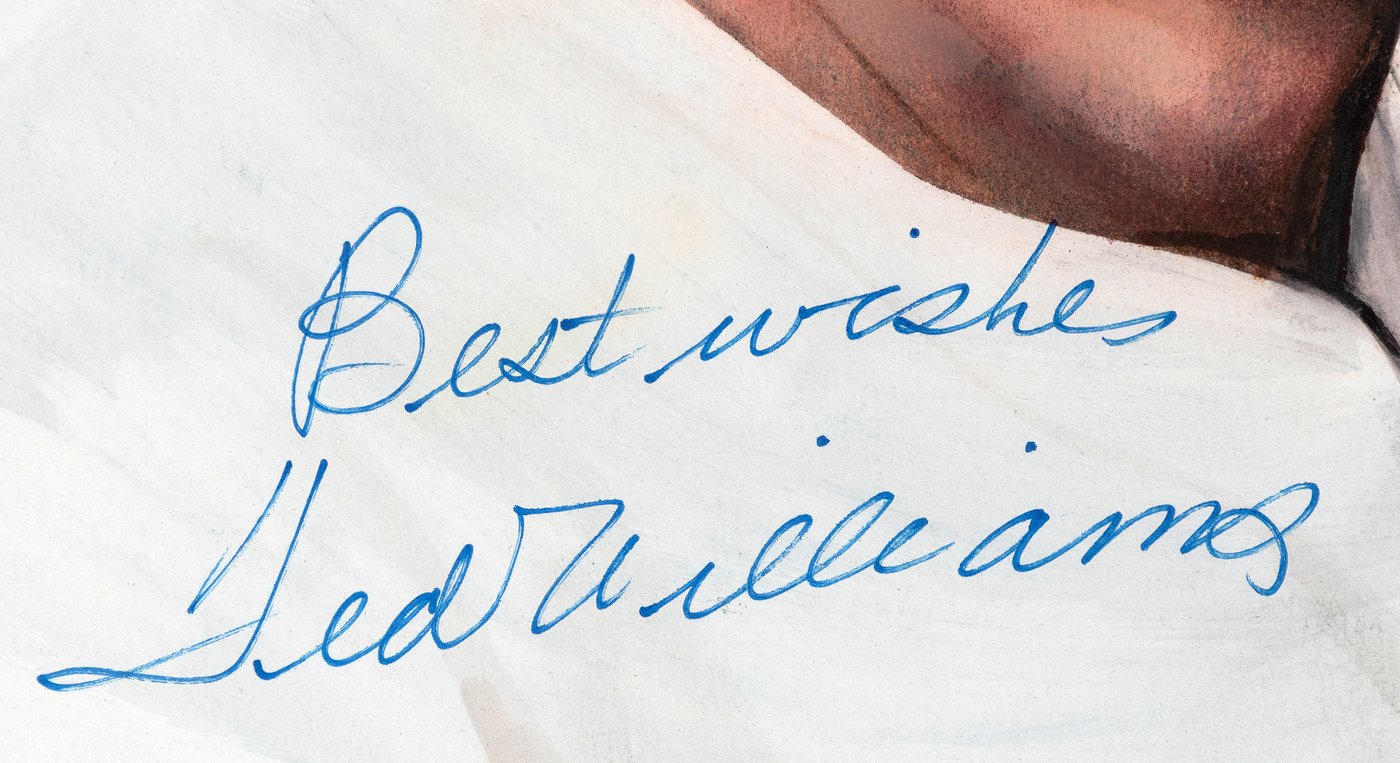 Best wishes
Ted Williams